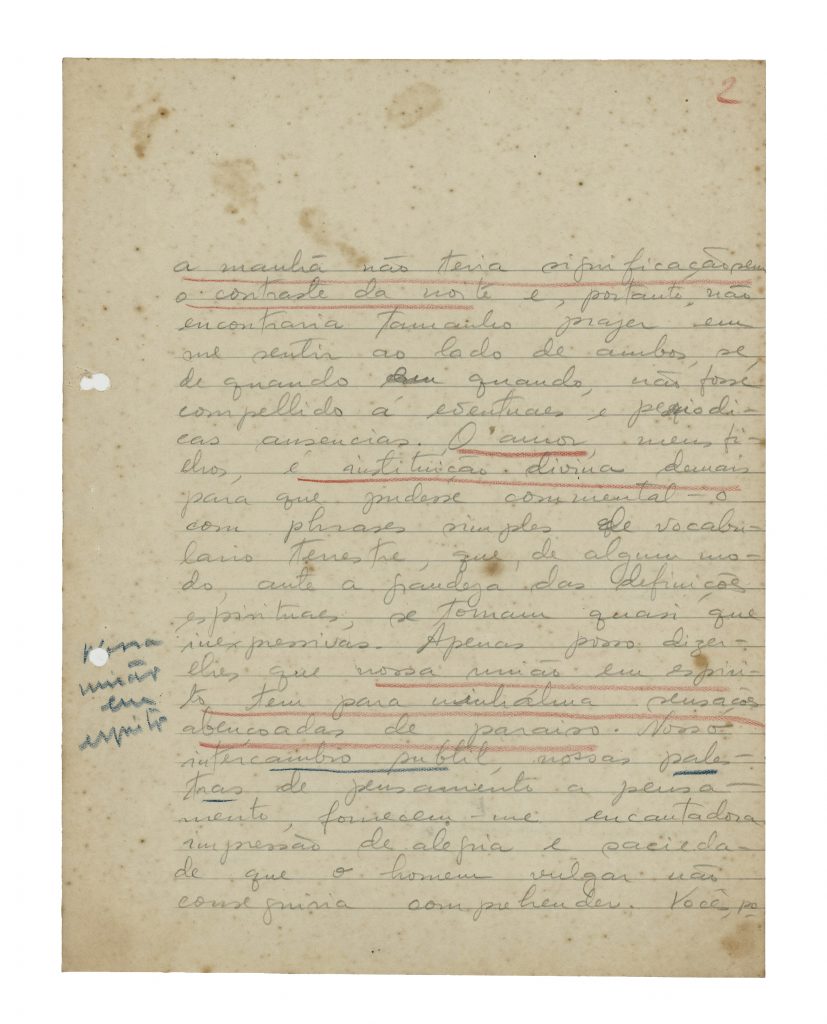 2
a manhã não teria significação sem
o contraste da noite e, portanto, não
encontraria tamanho prazer em
me sentir ao lado de ambos, se,
de quando em quando, não fosse
compellido á eventuaes e periodi-
cas ausencias. O amor, meus fi-
lhos, é instituição divina demais
para que pudesse commental-o
com phrases simples de vocabu-
lario terrestre, que, de algum mo-
do, ante a grandeza das definições
espirituaes, se tornam quasi que
inexpressivas. Apenas posso dizer-
lhes que nossa união em espiri-
to tem para minhalma sensações
abençoadas de paraiso. Nosso
intercambio subtil, nossas pales-
tras de pensamento a pensa-
mento, fornecem-me encantadora
impressão de alegria e sacieda-
de que o homem vulgar não
conseguiria comprehender. Vocês, po-
Nossa
união
em
espirito